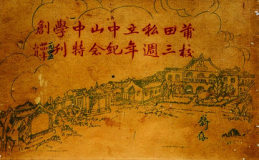 莆田私立中山中學創
校三週年紀念特刊